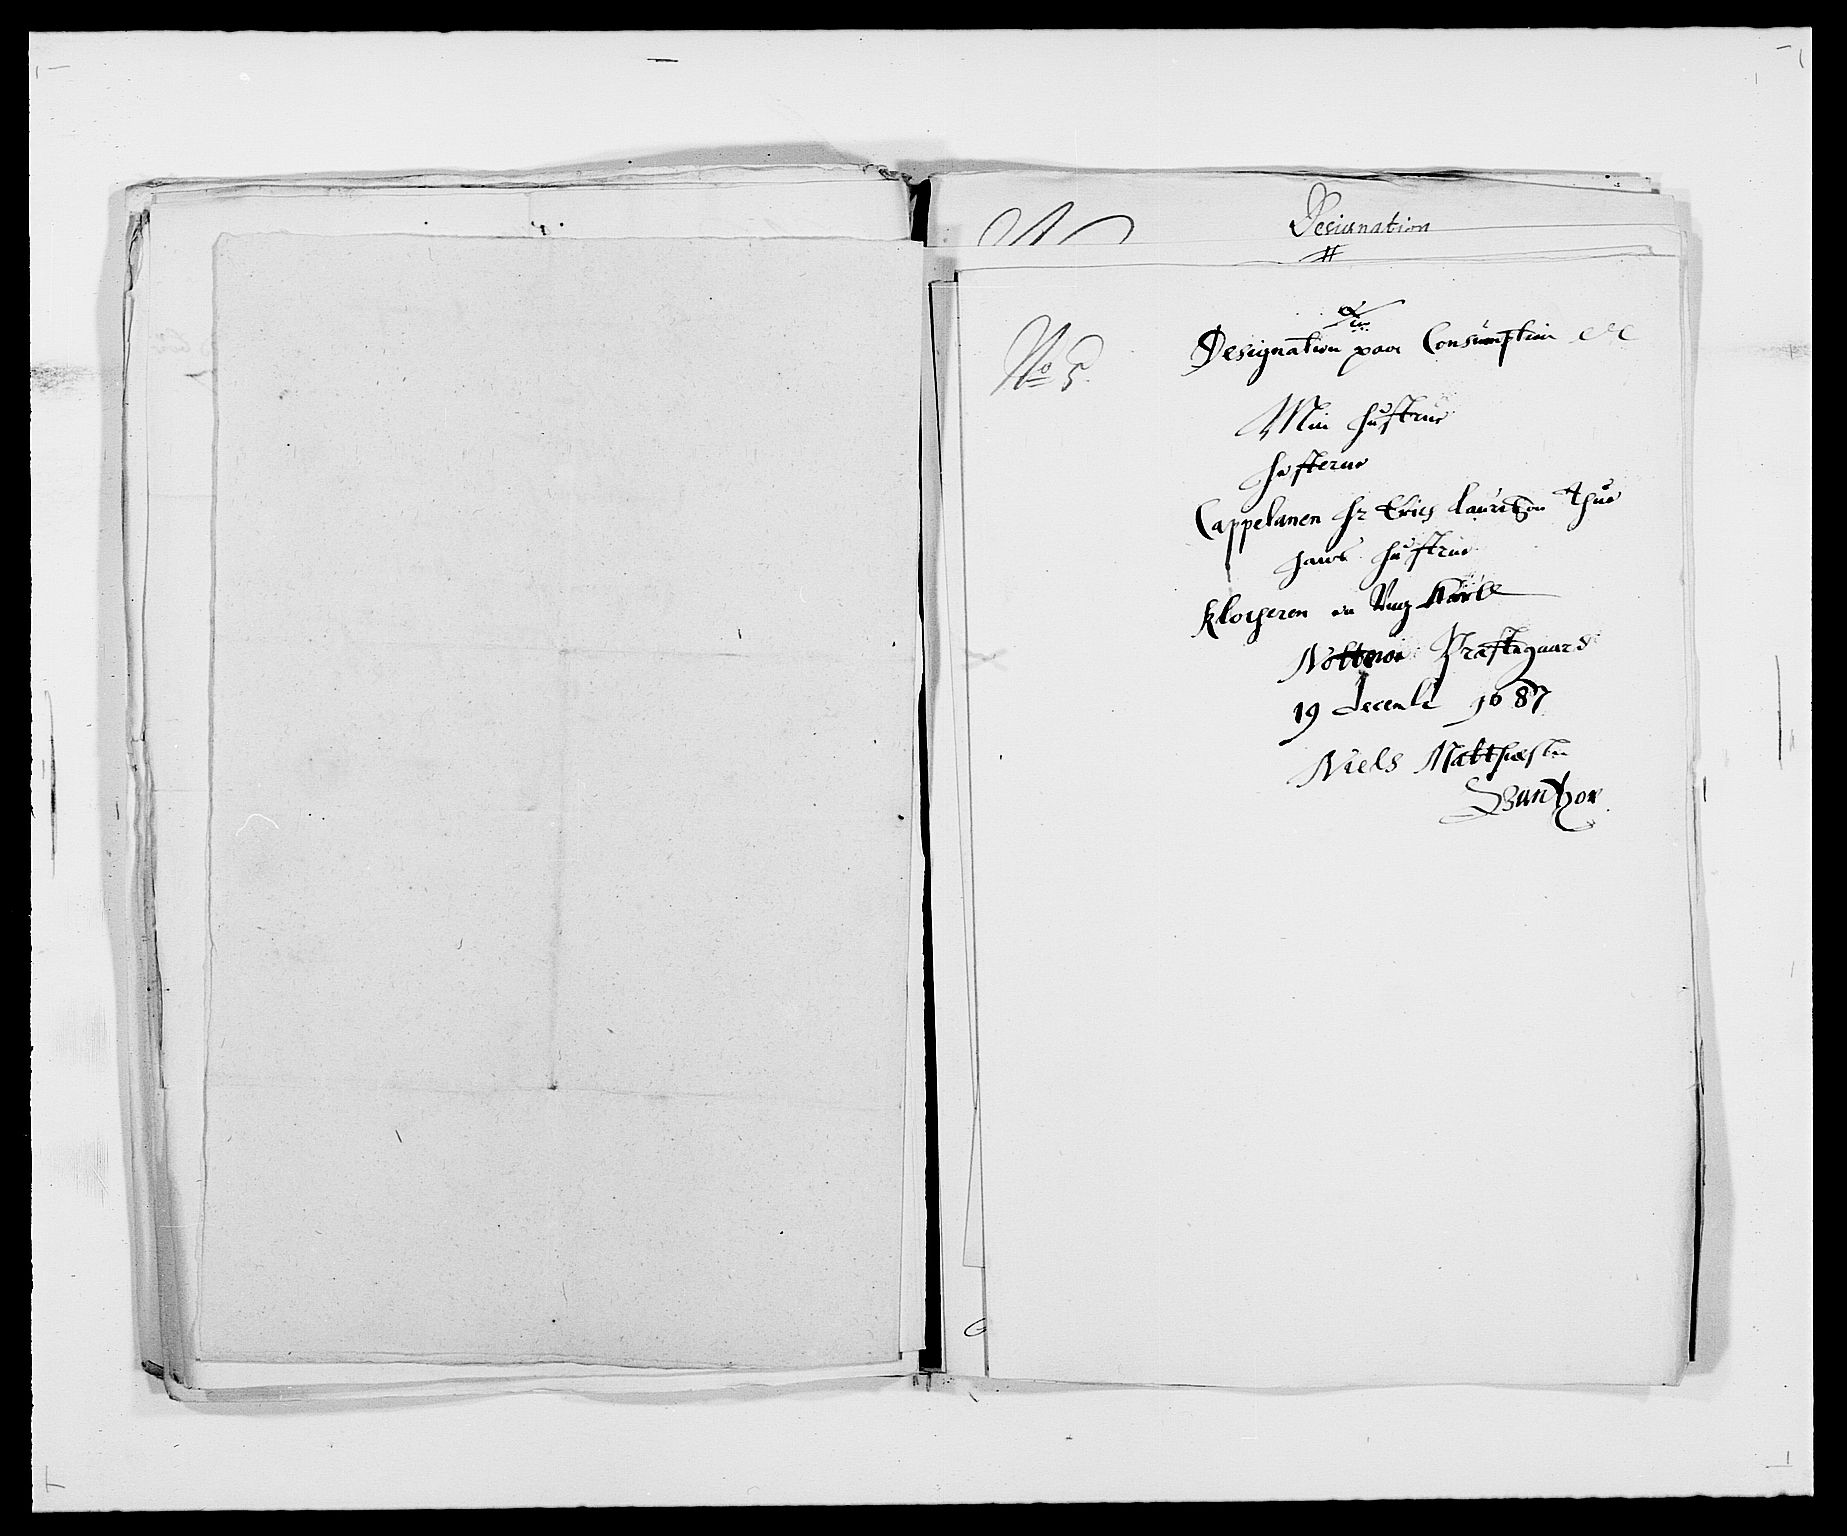 Designation
No 5.
Designation paa Consumption etc
Min hustrue
Cappelanen Hr Erich lauritzøn Thue
hans hustrue
Klocheren en Ung Karl
Nøtterøe Præstegaard
19 decemb 1687
Niels Matthæsøn